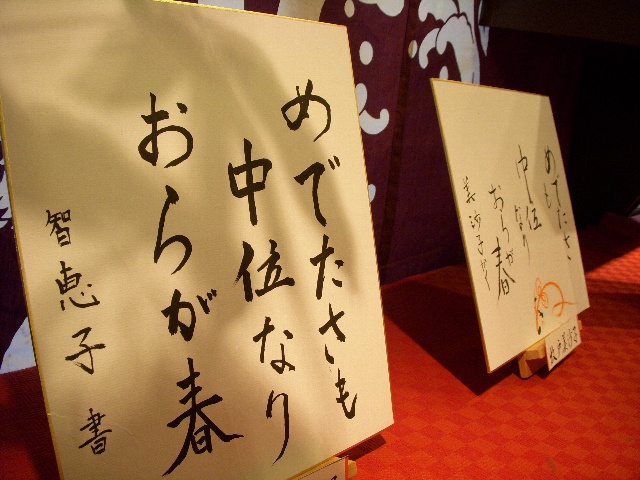 めでたさも
中位なり
おらが春
智恵子 書
めでたさ
も
中位
なり
おらが
春